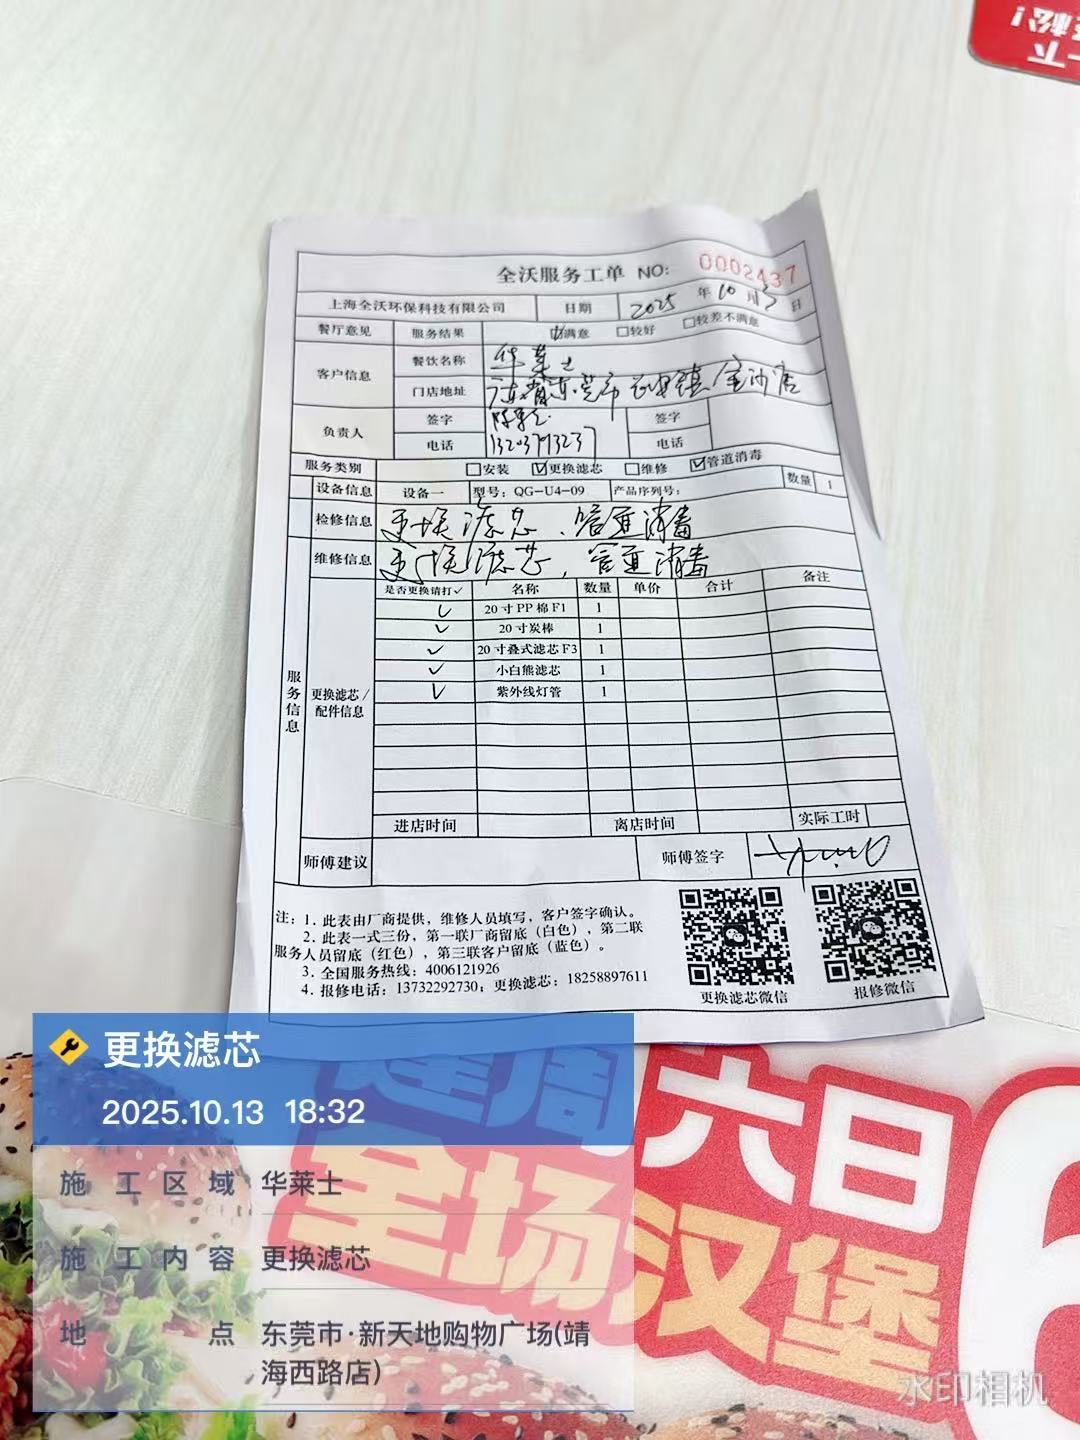 全沃服务工单 NO: 0002437
上海全沃环保科技有限公司 日期 2025 年 10 月 日
餐厅意见 服务结果 ☑满意 □较好 □较差不满意
客户信息 餐饮名称 华莱士
门店地址 广东省东莞市 镇 金沙店
负责人 签字 签字
电话 13203793237 电话
服务类别 □安装 ☑更换滤芯 □维修 ☑管道消毒
设备信息 设备一 型号：QG-U4-09 产品序列号： 数量 1
检修信息 更换滤芯、管道消毒
维修信息 更换滤芯，管道消毒
服务信息
更换滤芯/配件信息
是否更换请打✓ 名称 数量 单价 合计 备注
✓ 20寸PP棉F1 1
✓ 20寸炭棒 1
✓ 20寸叠式滤芯F3 1
✓ 小白熊滤芯 1
✓ 紫外线灯管 1
进店时间 离店时间 实际工时
师傅建议 师傅签字
注：1. 此表由厂商提供，维修人员填写，客户签字确认。
2. 此表一式三份，第一联厂商留底（白色），第二联
服务人员留底（红色），第三联客户留底（蓝色）。
3. 全国服务热线：4006121926
4. 报修电话：13732292730；更换滤芯：18258897611
更换滤芯微信 报修微信
更换滤芯
2025.10.13 18:32
施工区域 华莱士
施工内容 更换滤芯
地点 东莞市·新天地购物广场(靖
海西路店)
六日
全场汉堡
6
水印相机